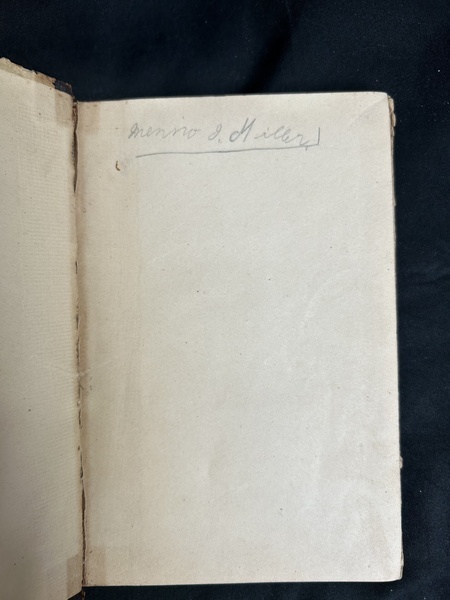 Menno J. Miller